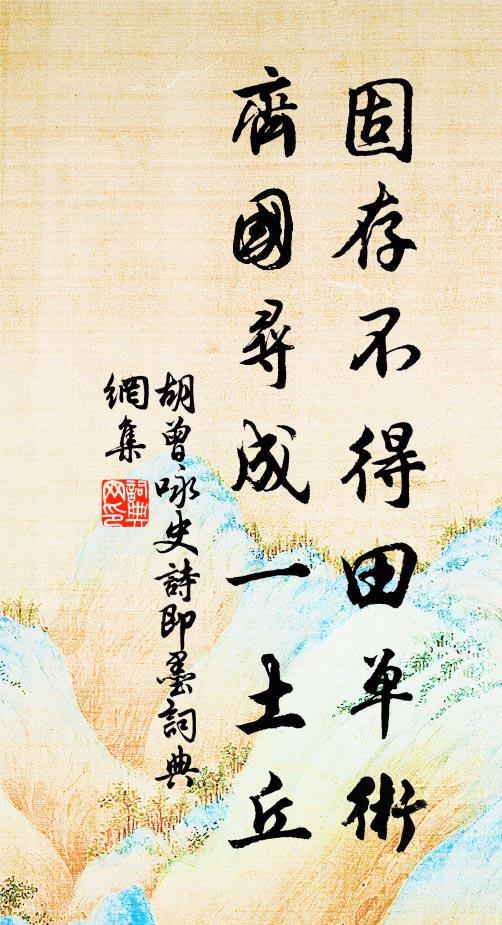 固存不得田单術
齊國尋成一土丘
胡曾咏史詩即墨詞典
網集
詞典
网印